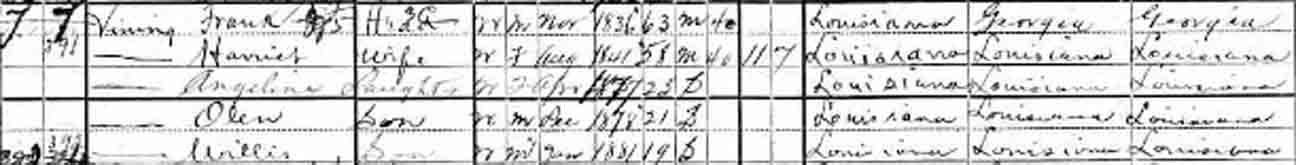 7 7 Vining Frank Head W M Nov 1836 63 M 40 Louisiana Georgia Georgia
291 — Harriet Wife W F Aug 1841 58 M 40 11 7 Louisiana Louisiana Louisiana
— Angeline Daughter W F Apr 1877 23 S Louisiana Louisiana Louisiana
— Olen Son W M Dec 1878 21 S Louisiana Louisiana Louisiana
— Willis Son W M Jan 1881 19 S Louisiana Louisiana Louisiana